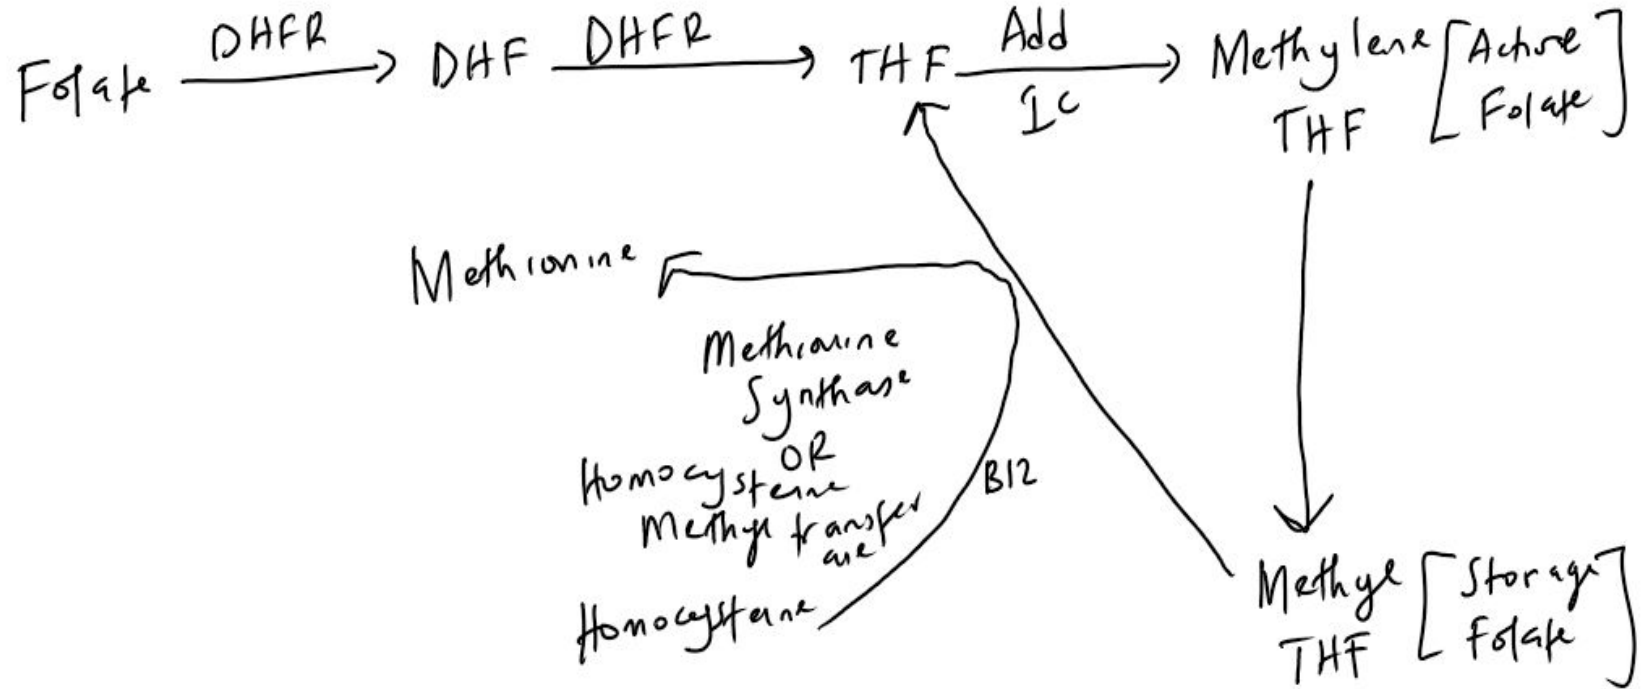 Folate DHFR DHF DHFR THF Add Methylene [Active
1C THF Folate]
Methionine
Methionine
Synthase
OR
Homocysteine
Methyl transfer
ase
B12
Homocysteine
Methyl [Storage
THF Folate]